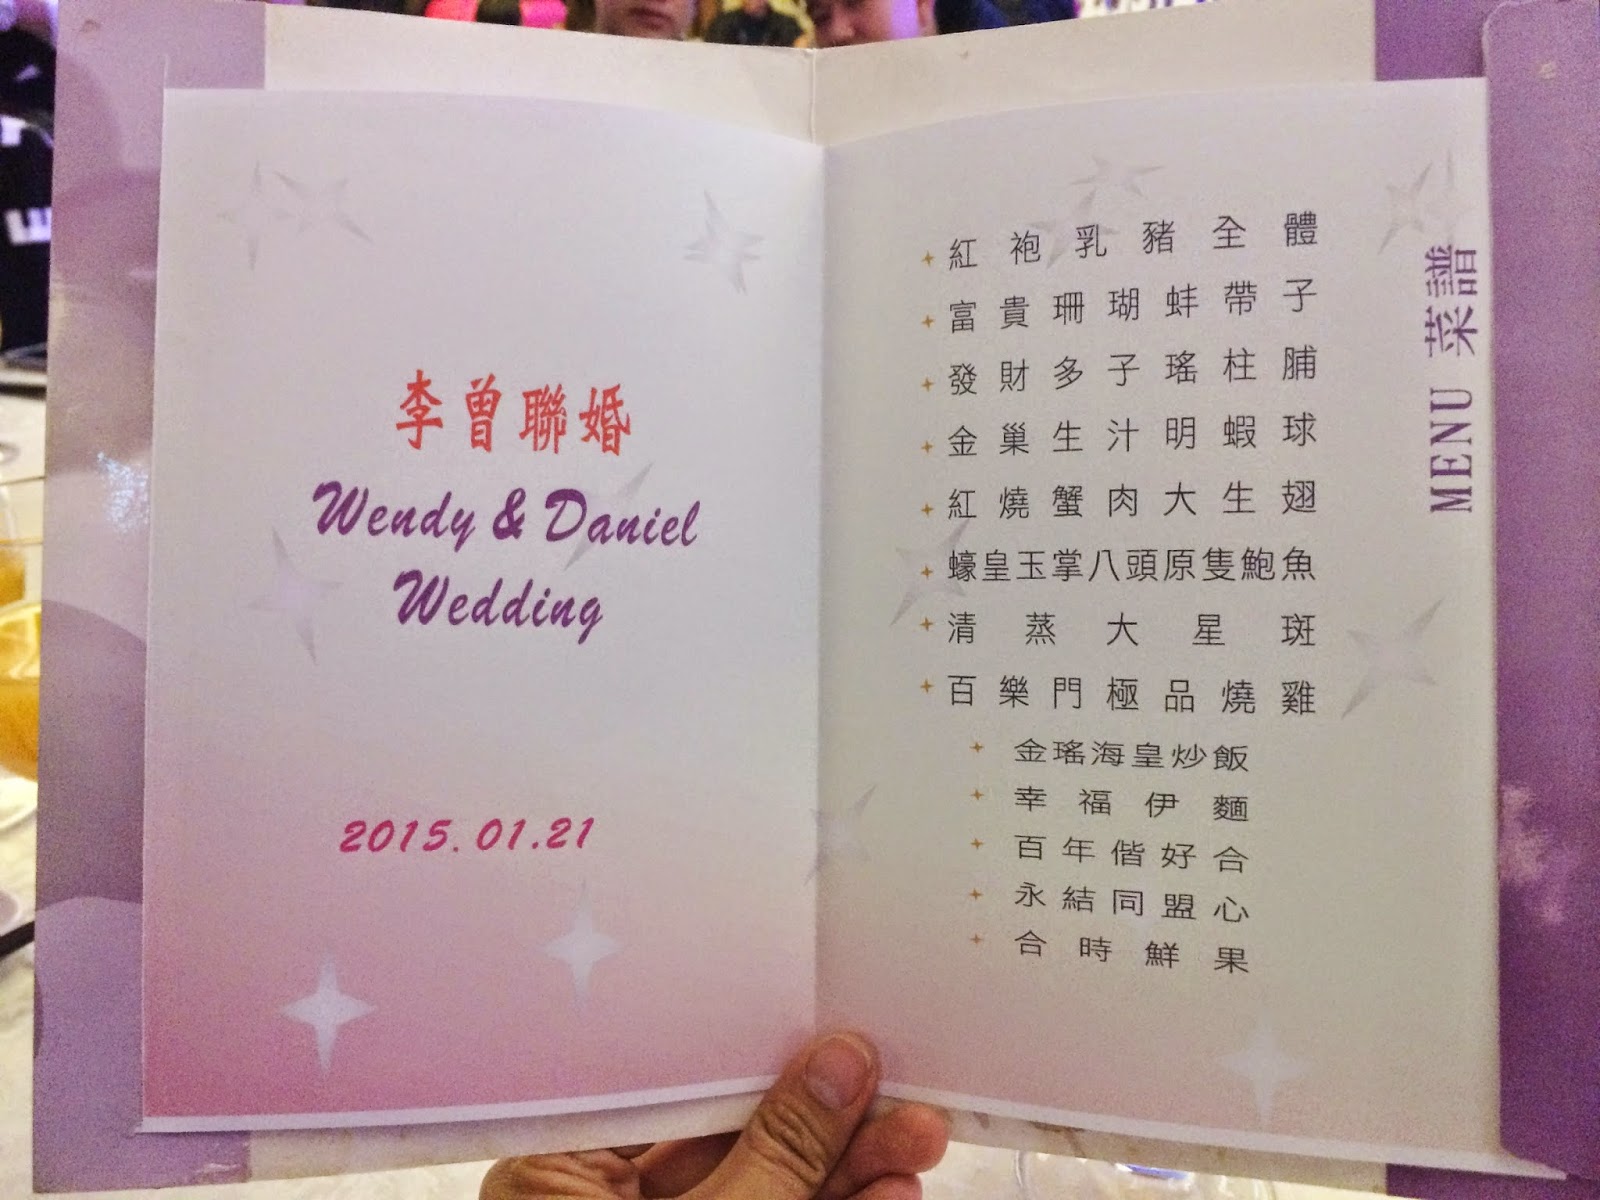 李曾聯婚
Wendy & Daniel
Wedding
2015.01.21
MENU 菜譜
紅袍乳豬全體
富貴珊瑚蚌帶子
發財多子瑤柱脯
金巢生汁明蝦球
紅燒蟹肉大生翅
蠔皇玉掌八頭原隻鮑魚
清蒸大星斑
百樂門極品燒雞
金瑤海皇炒飯
幸福伊麵
百年偕好合
永結同盟心
合時鮮果